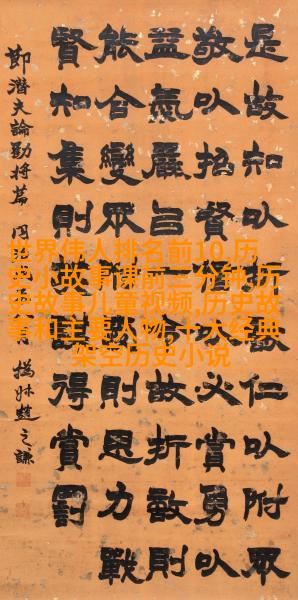 是故知以仁以附眾
敬以招賢必賞勇以
益氣嚴一令故折敵則
能合變眾則思力戰
賢知集則得賞罰
節潛夫論勸將篇
撝叔趙之謙
世界伟人排名前10,历
史小故事课前三分钟,历
史故事儿童视频,历史故
事和主要人物,十大经典
架空历史小说